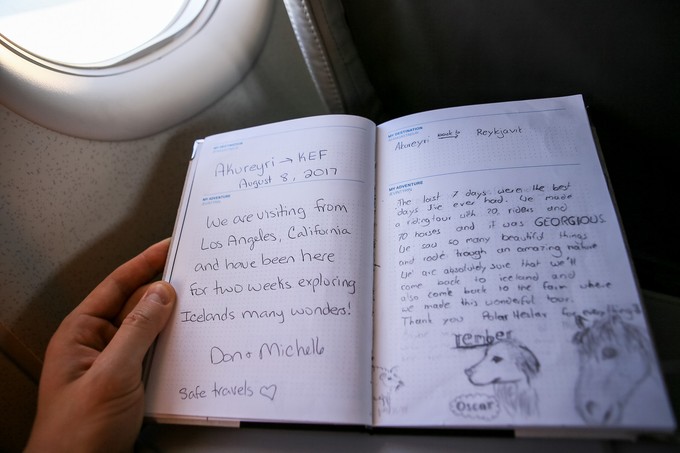 MY DESTINATION
Akureyri → KEF
August 8, 2017
MY ADVENTURE
We are visiting from
Los Angeles, California
and have been here
for two weeks exploring
Icelands many wonders!
Don + Michelle
Safe travels ♡
MY DESTINATION
Akureyri back to Reykjavik
MY ADVENTURE
The last 7 days were the best
days I've ever had. We made
a ridingtour with 20 riders and
70 horses and it was GEORGIOUS
We saw so many beautiful things
and rode trough an amazing nature
We are absolutely sure that we'll
come back to iceland and
also come back to the farm where
we made this wonderful tour.
Thank you Polar Hestar for everything!
Oscar